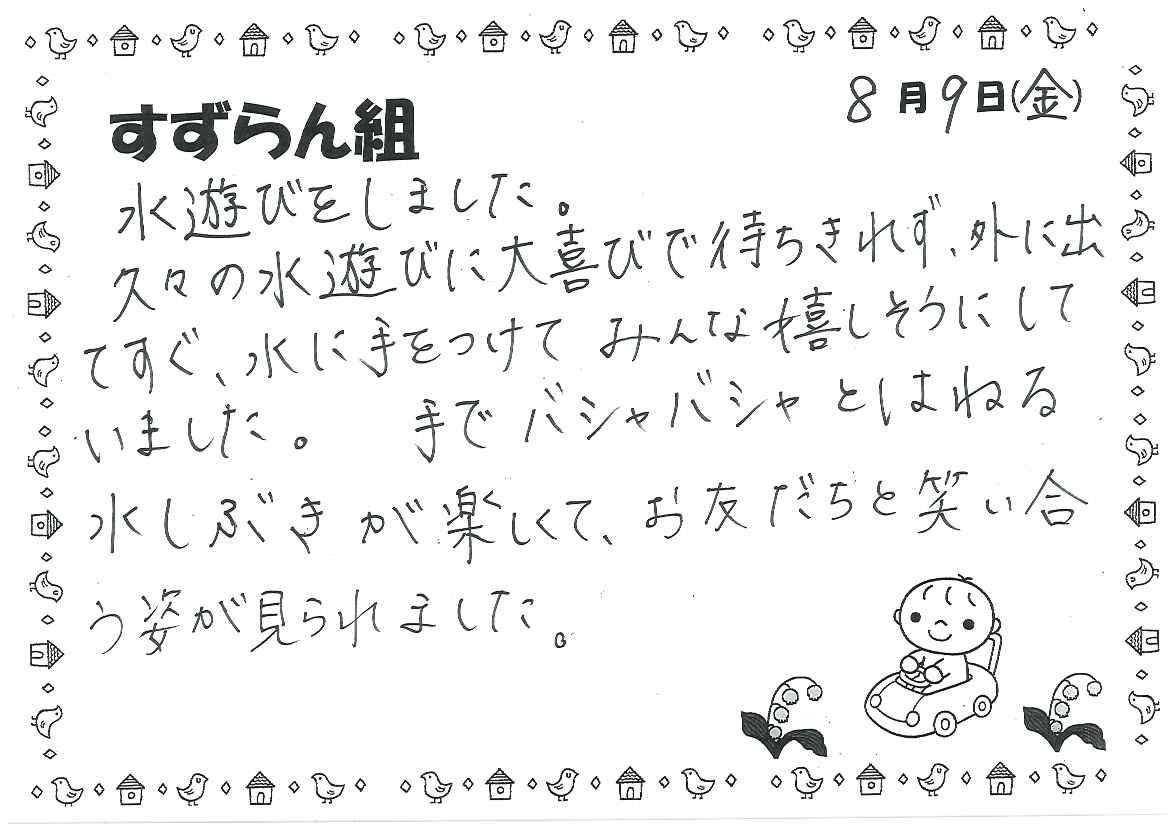 8月9日(金)
すずらん組
水遊びをしました。
久々の水遊びに大喜びで待ちきれず、外に出
てすぐ、水に手をつけてみんな嬉しそうにして
いました。 手でバシャバシャとはねる
水しぶきが楽しくて、お友だちと笑い合
う姿が見られました。